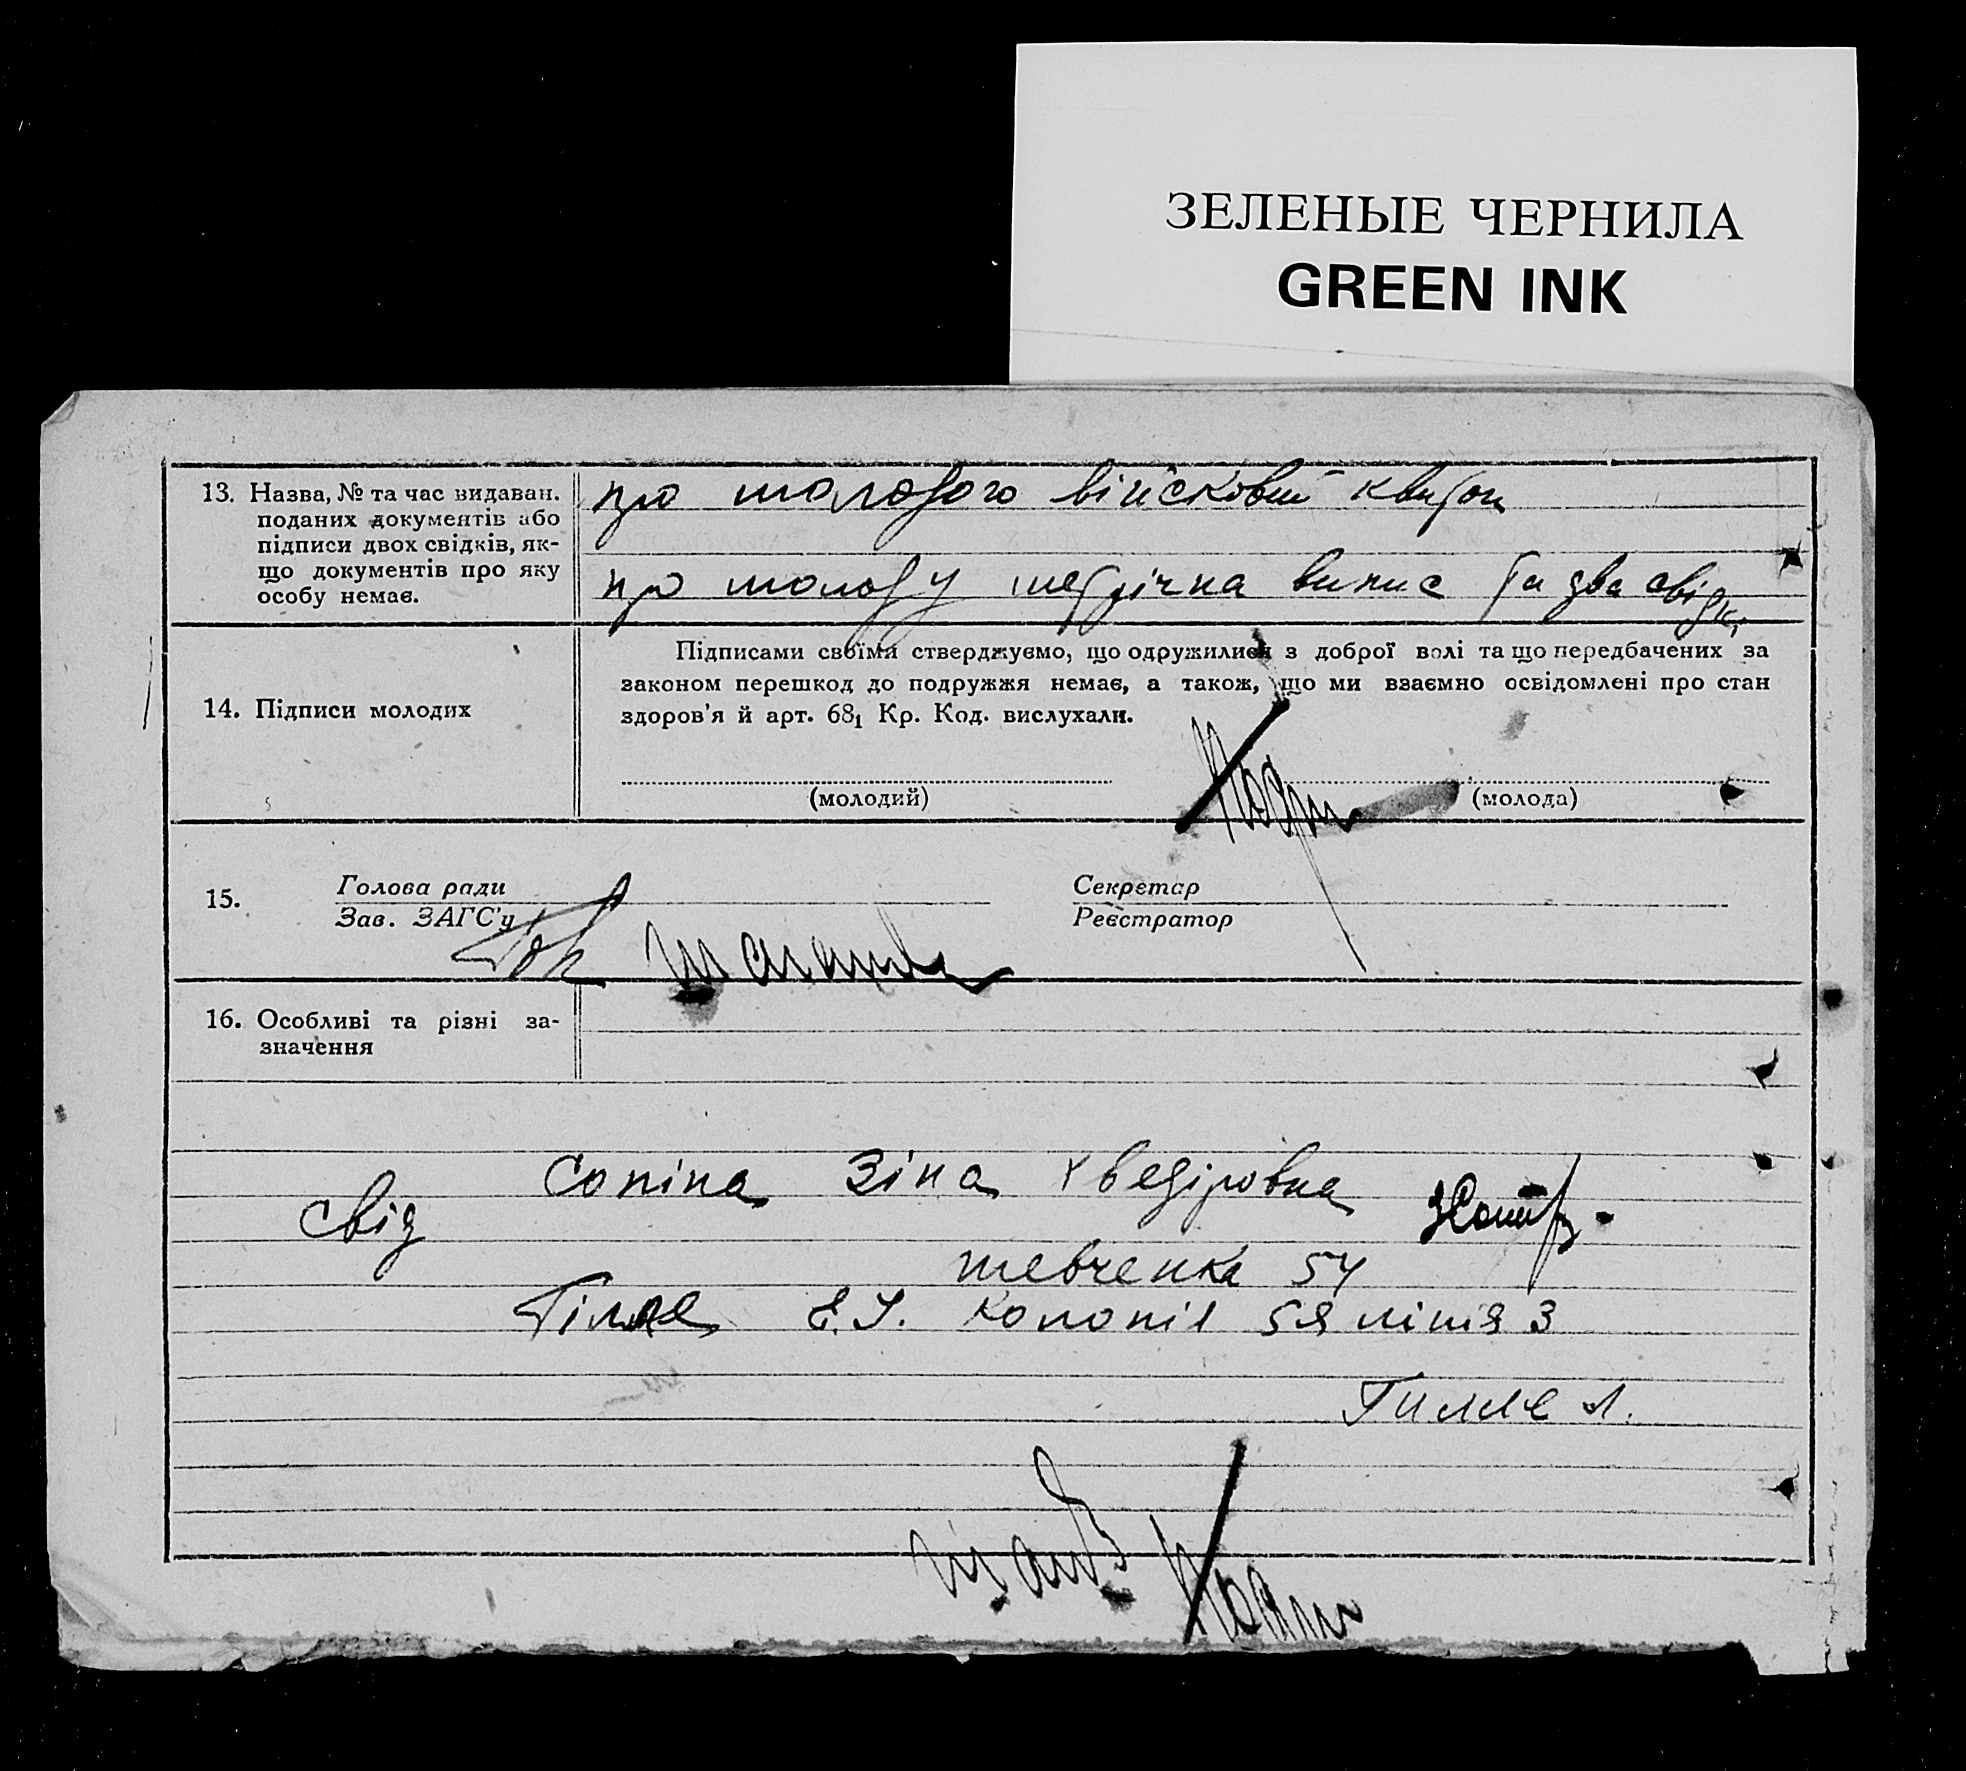 ЗЕЛЕНЫЕ ЧЕРНИЛА
GREEN INK
13. Назва, № та час видаван.
поданих документів або
підписи двох свідків, як-
що документів про яку
особу немає.
про молодого військовий квиток
про молоду метрічна випис та два свідк.
14. Підписи молодих
Підписами своїми стверджуємо, що одружилися з доброї волі та що передбачених за
законом перешкод до подружжя немає, а також, що ми взаємно освідомлені про стан
здоров'я й арт. 68₁ Кр. Код. вислухали.
(молодий)
(молода)
15.
Голова ради
Зав. ЗАГС'у
Секретар
Реєстратор
16. Особливі та різні за-
значення
Сопіна Зіна Хведіровна
свід
шевченка 54
Гілле Е. І. колонія 5я лінія 3
Гилле Л.